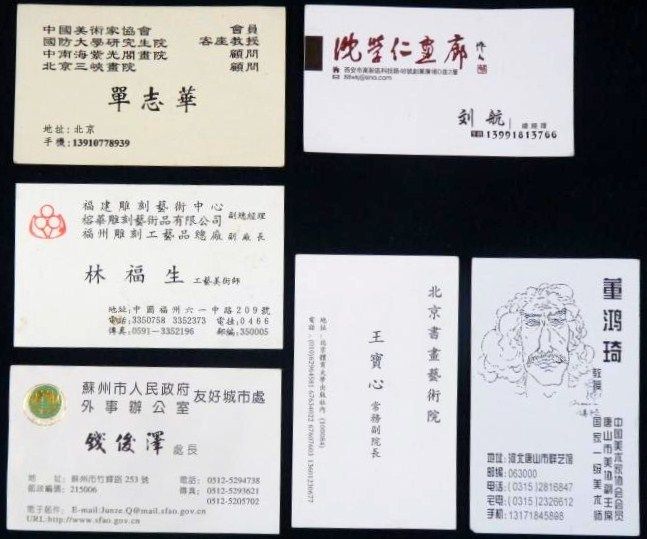 中國美術家協會 會員
國防大學研究生院 客座教授
中南海紫光閣畫院 顧問
北京三峽畫院 顧問
單志華
地址:北京
手機:13910778939
沈荣仁畫廊
西安市高新區科技路48號創業廣場D座2層
刘航 總經理
手機 13991813766
福建雕刻藝術中心
榕華雕刻藝術品有限公司 副總經理
福州雕刻工藝品總廠 副廠長
林福生 工藝美術師
地址:中國福州六一中路209號
電話:3350758 3352373 電挂:0466
傳真:0591-3352196 郵編:350005
蘇州市人民政府
外事辦公室 友好城市處
錢俊澤 處長
地 址: 蘇州市竹輝路 253 號
郵政編碼: 215006
電話: 0512-5294738
傳真: 0512-5293621
0512-5205702
電子郵件: E-mail:Junze.Q@mail.sfao.gov.cn
URL:http://www.sfao.gov.cn
北京書畫藝術院
王寶心 常務副院長
地址:北京體育大學出版社內 (100084)
董鸿琦 教授
中国美术家协会会员
唐山市美协副主席
国家一级美术师
地址:河北唐山市群艺馆
邮编:063000
电话:(0315)2816847
宅电:(0315)2326612
手机:13171845898